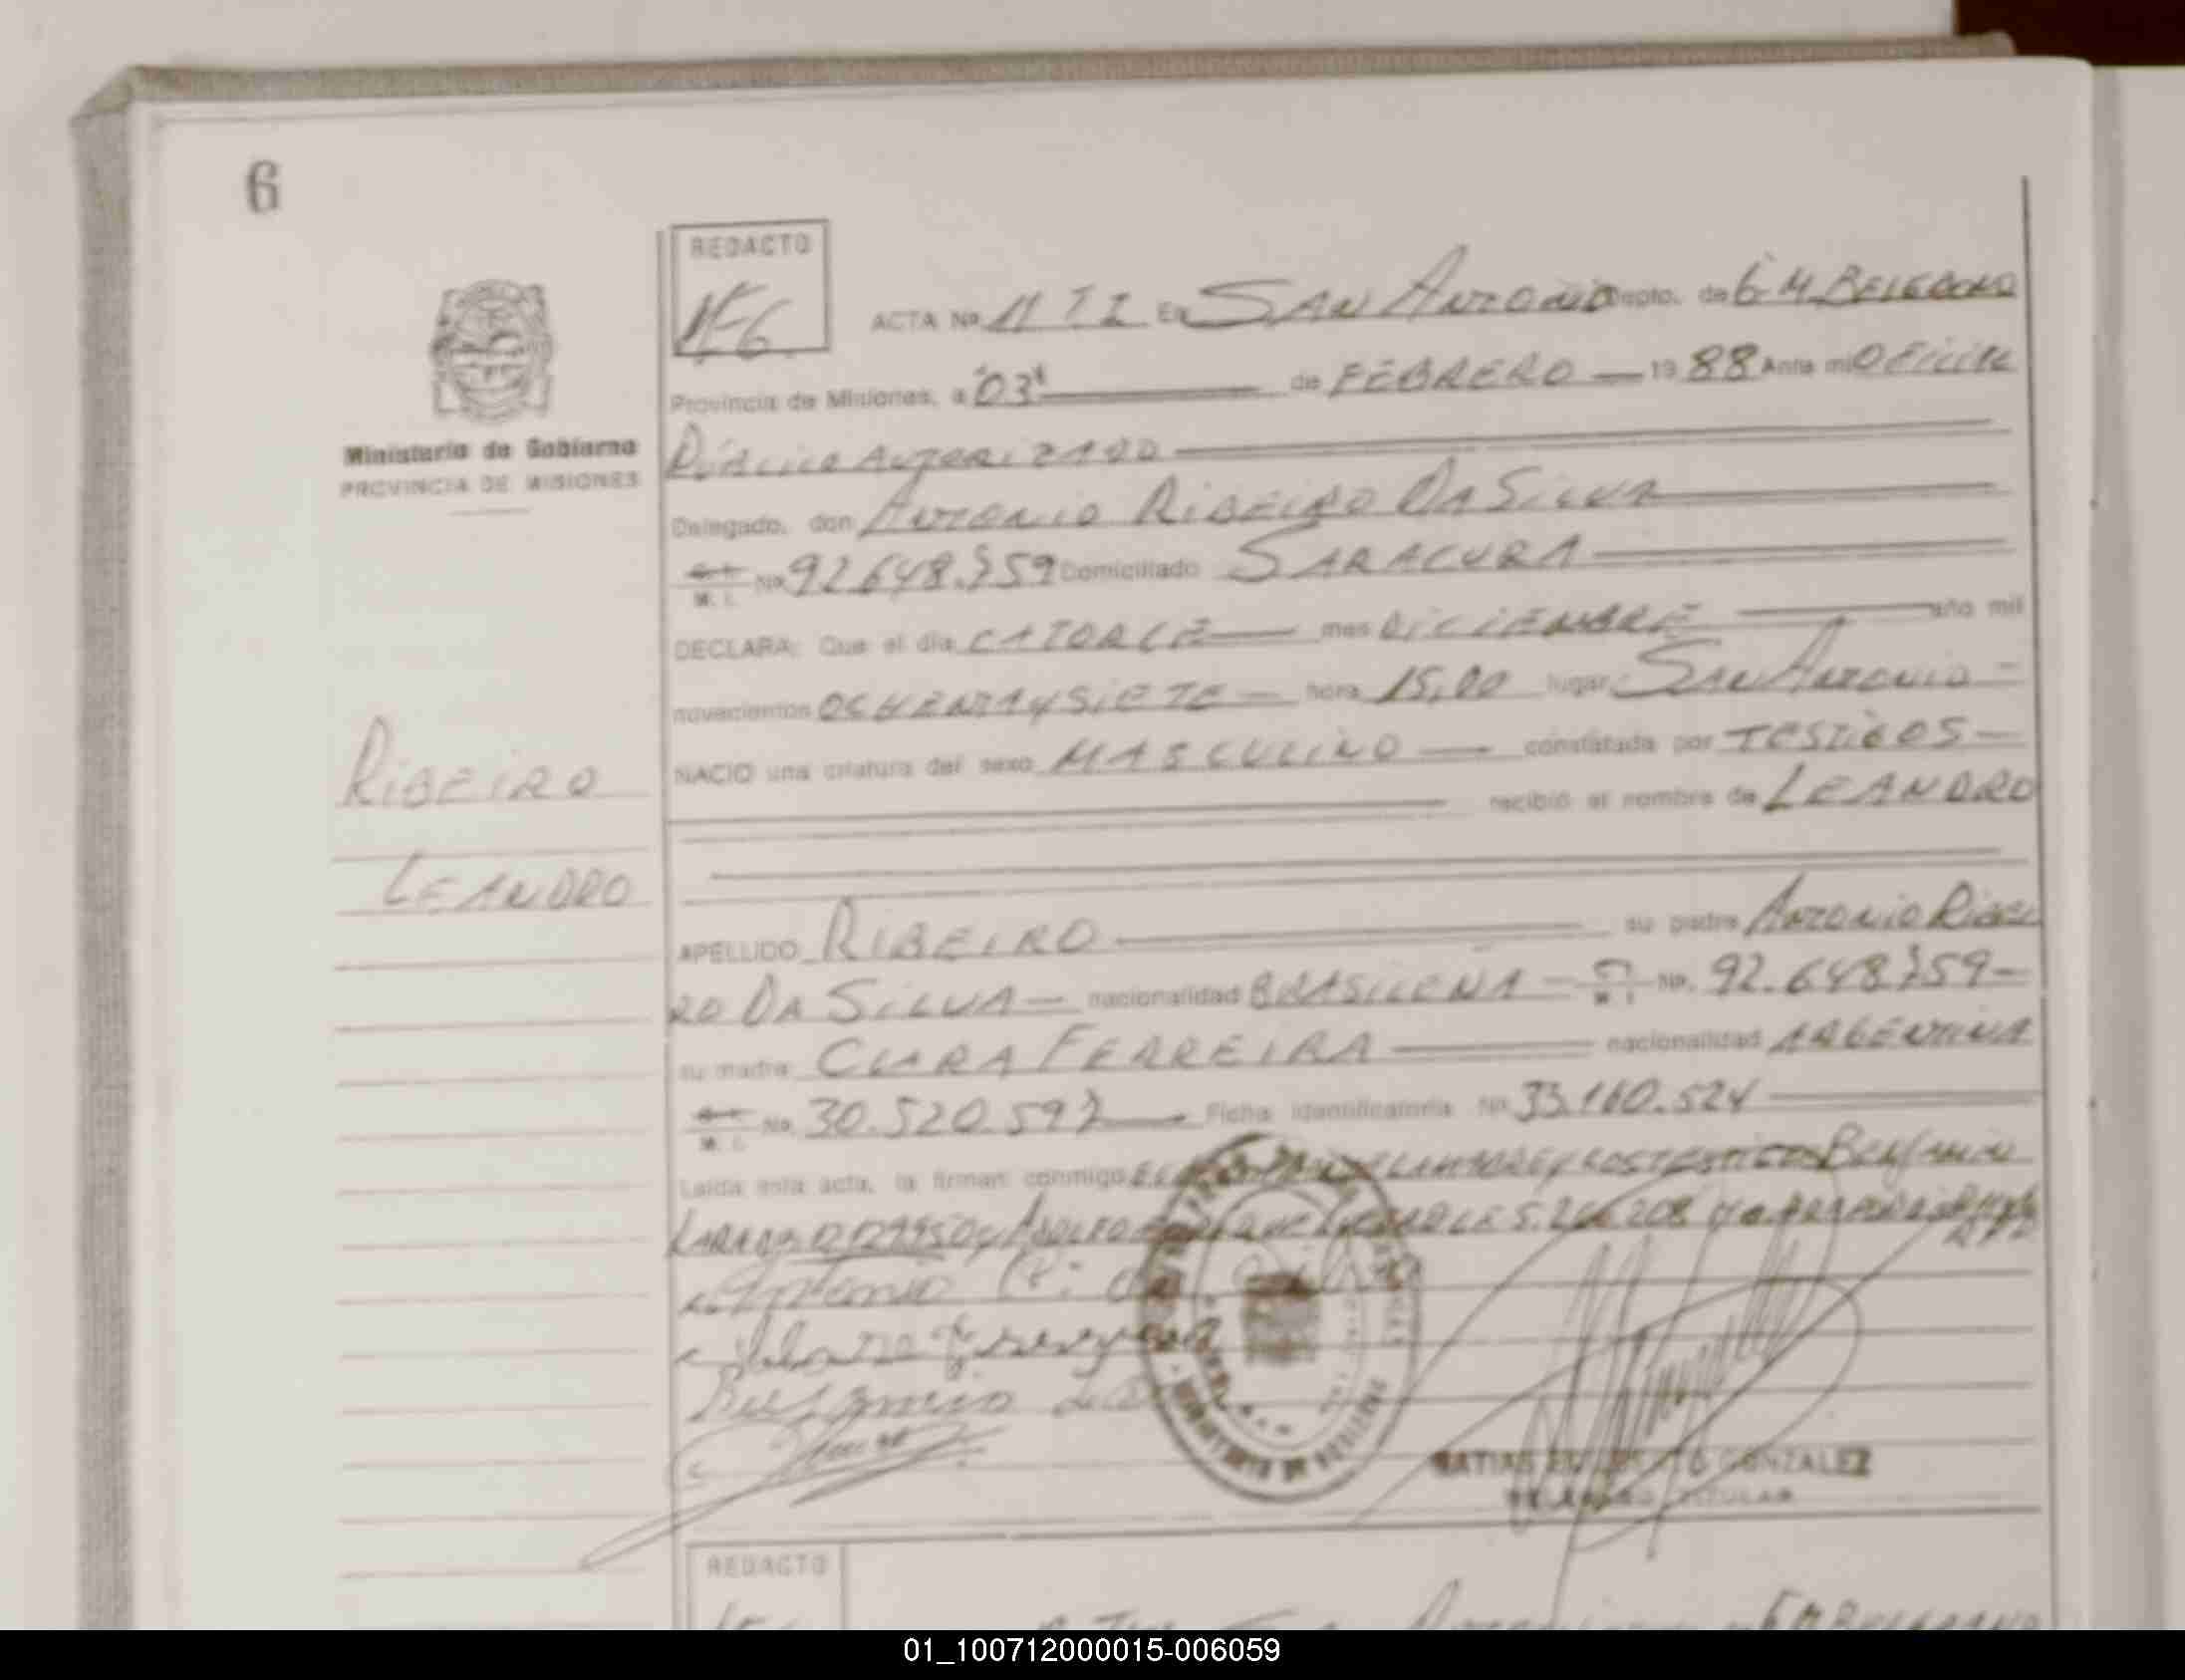 6
REDACTO
ACTA Nº 11 TI En SAN ANTONIO Depto. de G M BELGRANO
Provincia de Misiones, a 03 de FEBRERO — 1988 Ante mi OFICIAL
PÚBLICO AUTORIZADO
Ministerio de Gobierno
PROVINCIA DE MISIONES
Delegado, don ANTONIO RIBEIRO DA SILVA
M. I. Nº 92.648.759 Domiciliado SARACURA
DECLARA: Que el día CATORCE mes DICIEMBRE año mil
novecientos OCHENTA Y SIETE — hora 15,00 lugar SAN ANTONIO —
NACIO una criatura del sexo MASCULINO — constatada por TESTIGOS —
RIBEIRO
recibió el nombre de LEANDRO
LEANDRO
APELLIDO RIBEIRO su padre ANTONIO RIBEI
RO DA SILVA — nacionalidad BRASILEÑA — M. I. Nº. 92.648.759 —
su madre CLARA FERREIRA nacionalidad ARGENTINA
M. I. Nº 30.520.597 Ficha identificatoria Nº 33.160.524
Leída esta acta, la firman conmigo BENJAMIN
Antonio R. da
GONZALEZ
TITULAR
REDACTO
G M BELGRANO
01_100712000015-006059